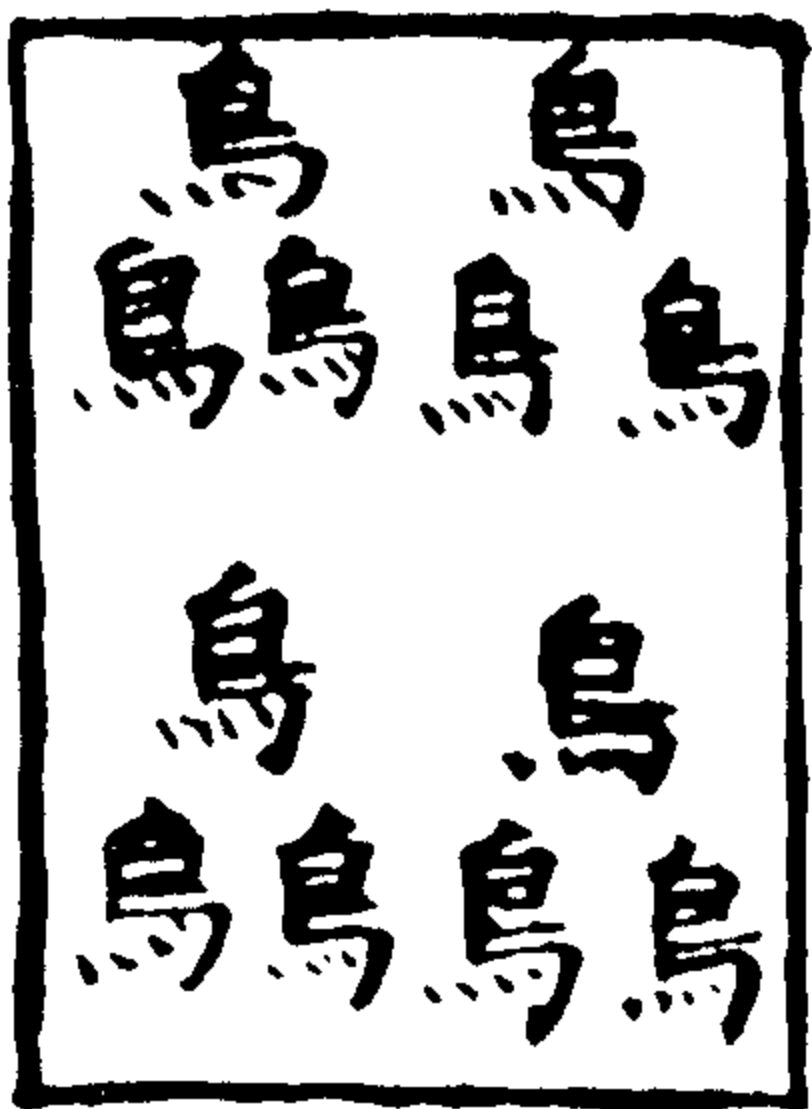 鳥 鳥
鳥鳥 鳥鳥
鳥 鳥
鳥鳥 鳥鳥